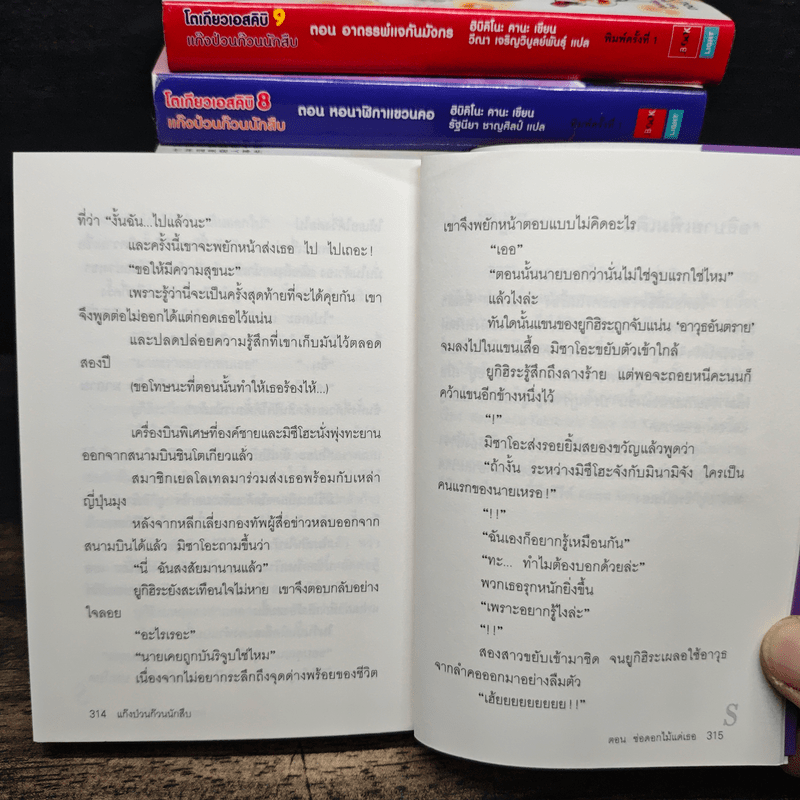 โตเกียวเอสคิบิ 9
แก๊งป่วนก๊วนนักสืบ
ตอน อาถรรพ์แจกันมังกร
ฮิบิคิโนะ คานะ เขียน
วีณา เจริญวิบูลย์พันธุ์ แปล
พิมพ์ครั้งที่ 1
LIGHT
โตเกียวเอสคิบิ 8
แก๊งป่วนก๊วนนักสืบ
ตอน หอนาฬิกาแขวนคอ
ฮิบิคิโนะ คานะ เขียน
รัฐนียา ชาญศิลป์ แปล
LIGHT
ที่ว่า “งั้นฉัน...ไปแล้วนะ”
และครั้งนี้เขาจะพยักหน้าส่งเธอ ไป ไปเถอะ!
“ขอให้มีความสุขนะ”
เพราะรู้ว่านี่จะเป็นครั้งสุดท้ายที่จะได้คุยกัน เขา
จึงพูดต่อไม่ออกได้แต่กอดเธอไว้แน่น
และปลดปล่อยความรู้สึกที่เขาเก็บมันไว้ตลอด
สองปี
(ขอโทษนะที่ตอนนั้นทำให้เธอร้องไห้...)
เครื่องบินพิเศษที่องค์ชายและมิซึโฮะนั่งพุ่งทะยาน
ออกจากสนามบินชินโตเกียวแล้ว
สมาชิกเยลโลเทลมาร่วมส่งเธอพร้อมกับเหล่า
ญี่ปุ่นมุง
หลังจากหลีกเลี่ยงกองทัพผู้สื่อข่าวหลบออกจาก
สนามบินได้แล้ว มิซาโอะถามขึ้นว่า
“นี่ ฉันสงสัยมานานแล้ว”
ยูกิฮิระยังสะเทือนใจไม่หาย เขาจึงตอบกลับอย่าง
ใจลอย
“อะไรเรอะ”
“นายเคยถูกบันริจูบใช่ไหม”
เนื่องจากไม่อยากระลึกถึงจุดด่างพร้อยของชีวิต
314 แก๊งป่วนก๊วนนักสืบ
เขาจึงพยักหน้าตอบแบบไม่คิดอะไร
“เออ”
“ตอนนั้นนายบอกว่านั่นไม่ใช่จูบแรกใช่ไหม”
แล้วไงล่ะ
ทันใดนั้นแขนของยูกิฮิระถูกจับแน่น ‘อาวุธอันตราย’
จมลงไปในแขนเสื้อ มิซาโอะขยับตัวเข้าใกล้
ยูกิฮิระรู้สึกถึงลางร้าย แต่พอจะถอยหนีคะนนก็
คว้าแขนอีกข้างหนึ่งไว้
“!”
มิซาโอะส่งรอยยิ้มสยองขวัญแล้วพูดว่า
“ถ้างั้น ระหว่างมิซึโฮะจังกับมินามิจัง ใครเป็น
คนแรกของนายเหรอ!”
“!!”
“ฉันเองก็อยากรู้เหมือนกัน”
“ทะ... ทำไมต้องบอกด้วยล่ะ”
พวกเธอรุกหนักยิ่งขึ้น
“เพราะอยากรู้ไงล่ะ”
“!!”
สองสาวขยับเข้ามาชิด จนยูกิฮิระเผลอใช้อาวุธ
จากลำคอออกมาอย่างลืมตัว
“เฮ้ยยยยยยยยย!!”
ตอน ช่อดอกไม้แด่เธอ 315
S